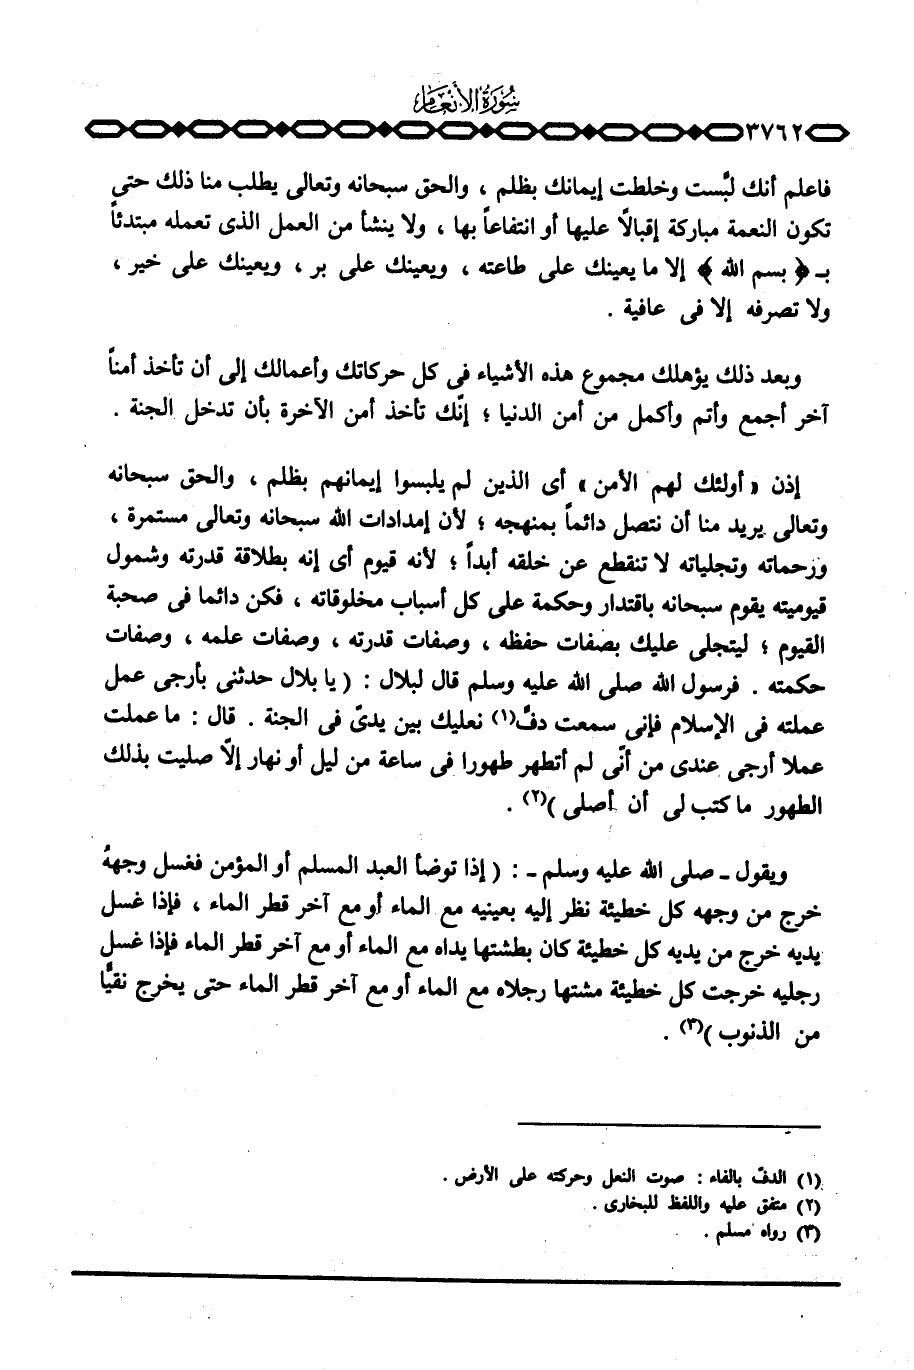 سُورَةُ الأَنْعَامِ
٣٧٦٢
فاعلم أنك لبَّست وخلطت إيمانك بظلم ، والحق سبحانه وتعالى يطلب منا ذلك حتى
تكون النعمة مباركة إقبالًا عليها أو انتفاعاً بها ، ولا ينشأ من العمل الذى تعمله مبتدئاً
بـ ﴿ بسم الله ﴾ إلا ما يعينك على طاعته ، ويعينك على بر ، ويعينك على خير ،
ولا تصرفه إلا فى عافية .
وبعد ذلك يؤهلك مجموع هذه الأشياء فى كل حركاتك وأعمالك إلى أن تأخذ أمناً
آخر أجمع وأتم وأكمل من أمن الدنيا ؛ إنّك تأخذ أمن الآخرة بأن تدخل الجنة .
إذن « أولئك لهم الأمن » أى الذين لم يلبسوا إيمانهم بظلم ، والحق سبحانه
وتعالى يريد منا أن نتصل دائماً بمنهجه ؛ لأن إمدادات الله سبحانه وتعالى مستمرة ،
ورحماته وتجلياته لا تنقطع عن خلقه أبداً ؛ لأنه قيوم أى إنه بطلاقة قدرته وشمول
قيوميته يقوم سبحانه باقتدار وحكمة على كل أسباب مخلوقاته ، فكن دائما فى صحبة
القيوم ؛ ليتجلى عليك بصفات حفظه ، وصفات قدرته ، وصفات علمه ، وصفات
حكمته . فرسول الله صلى الله عليه وسلم قال لبلال : ( يا بلال حدثنى بأرجى عمل
عملته فى الإسلام فإنى سمعت دفَّ(١) نعليك بين يدىّ فى الجنة . قال : ما عملت
عملا أرجى عندى من أنّى لم أتطهر طهورا فى ساعة من ليل أو نهار إلّا صليت بذلك
الطهور ما كتب لى أن أصلى )(٢) .
ويقول ـ صلى الله عليه وسلم ـ : ( إذا توضأ العبد المسلم أو المؤمن فغسل وجههُ
خرج من وجهه كل خطيئة نظر إليه بعينيه مع الماء أو مع آخر قطر الماء ، فإذا غسل
يديه خرج من يديه كل خطيئة كان بطشتها يداه مع الماء أو مع آخر قطر الماء فإذا غسل
رجليه خرجت كل خطيئة مشتها رجلاه مع الماء أو مع آخر قطر الماء حتى يخرج نقيًّا
من الذنوب )(٣) .
(١) الدفّ بالفاء : صوت النعل وحركته على الأرض .
(٢) متفق عليه واللفظ للبخارى .
(٣) رواه مسلم .